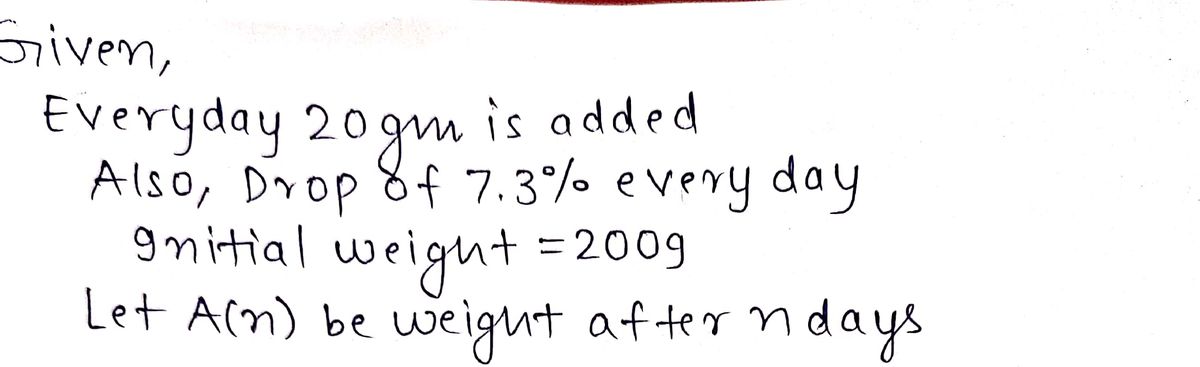 Given,
Everyday 20gm is added
Also, Drop of 7.3% every day
Initial weight = 200g
Let A(n) be weight after n days